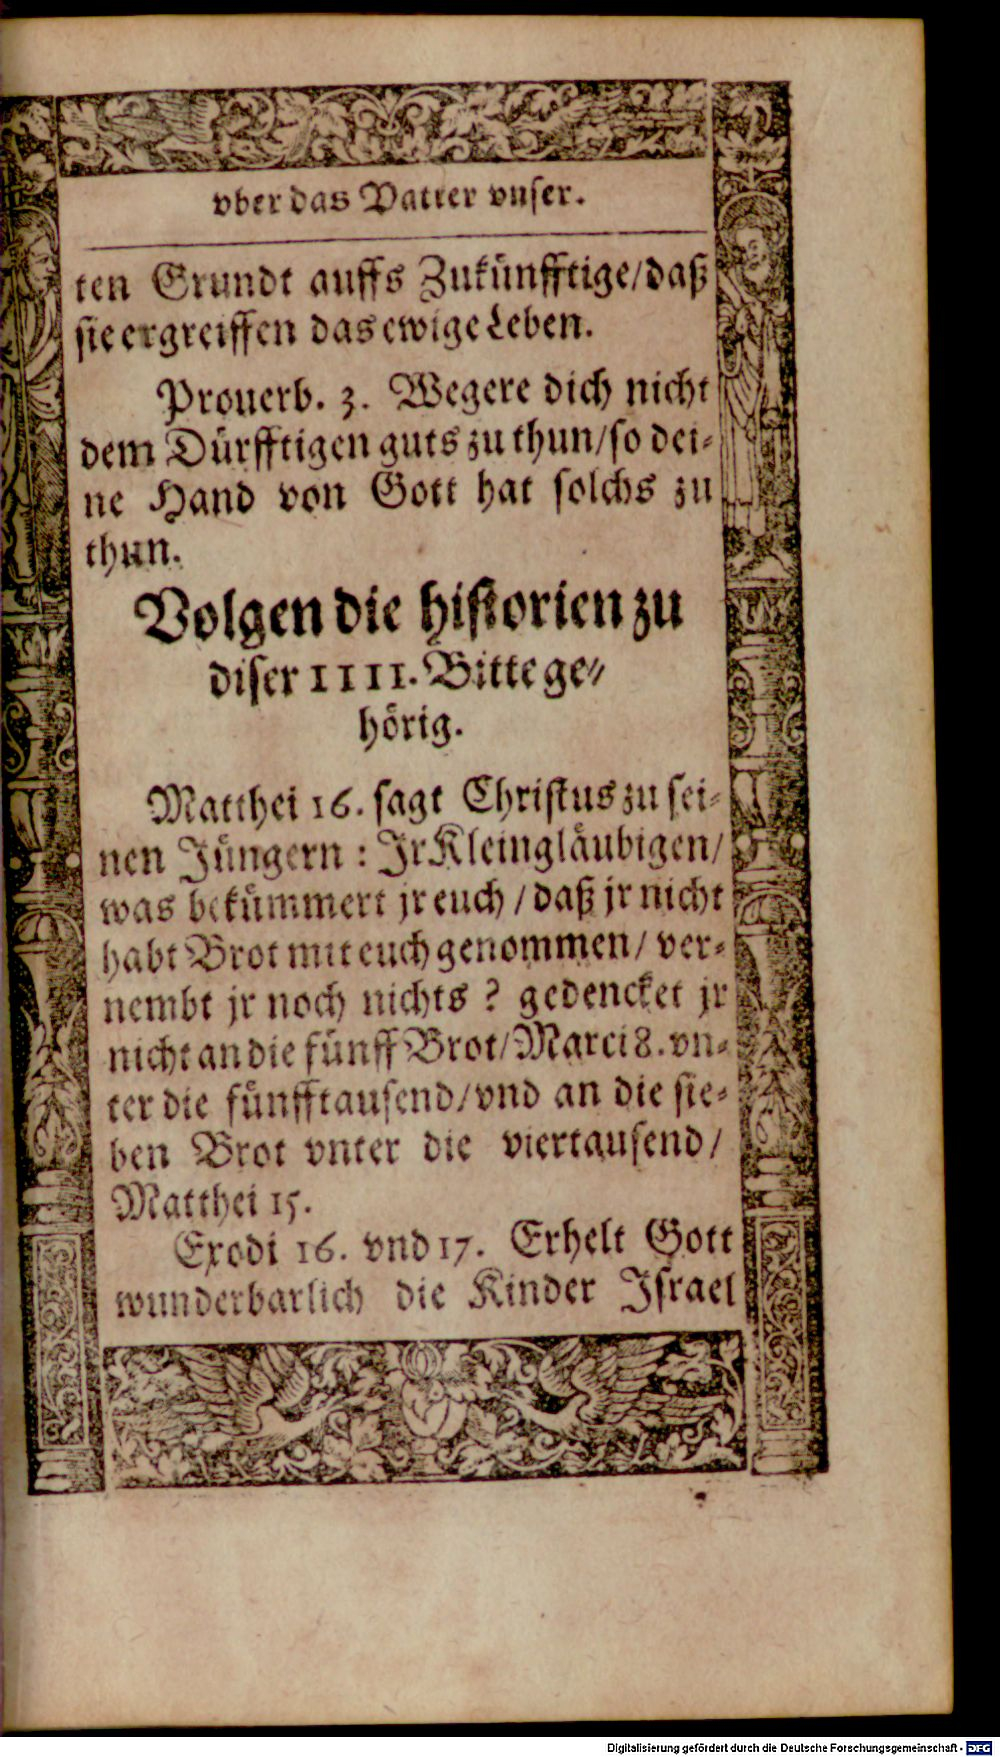 vber das Vatter vnser.
ten Grundt auffs Zukünfftige/daß
sie ergreiffen das ewige Leben.
Prouerb. 3. Wegere dich nicht
dem Dürfftigen guts zu thun/so dei-
ne Hand von Gott hat solchs zu
thun.
Volgen die historien zu
diser IIII. Bitte ge-
hörig.
Matthei 16. sagt Christus zu sei-
nen Jüngern : Jr Kleingläubigen/
was bekümmert jr euch / daß jr nicht
habt Brot mit euch genommen/ ver-
nembt jr noch nichts ? gedencket jr
nicht an die fünff Brot/Marci 8. vn-
ter die fünfftausend/vnd an die sie-
ben Brot vnter die viertausend/
Matthei 15.
Exodi 16. vnd 17. Erhelt Gott
wunderbarlich die Kinder Jsrael
Digitalisierung gefördert durch die Deutsche Forschungsgemeinschaft - DFG